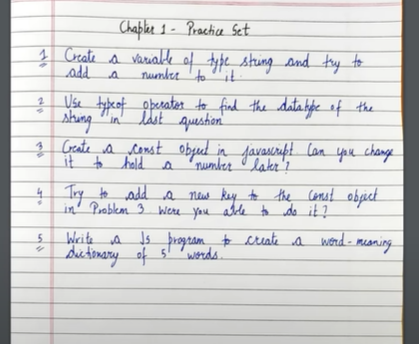 Chapter 1 - Practice Set
1 Create a variable of type string and try to
add a number to it.
2 Use typeof operator to find the datatype of the
string in last question
3 Create a const object in javascript Can you change
it to hold a number later?
4 Try to add a new key to the const object
in Problem 3 Were you able to do it?
5 Write a Js program to create a word-meaning
dictionary of 5 words.